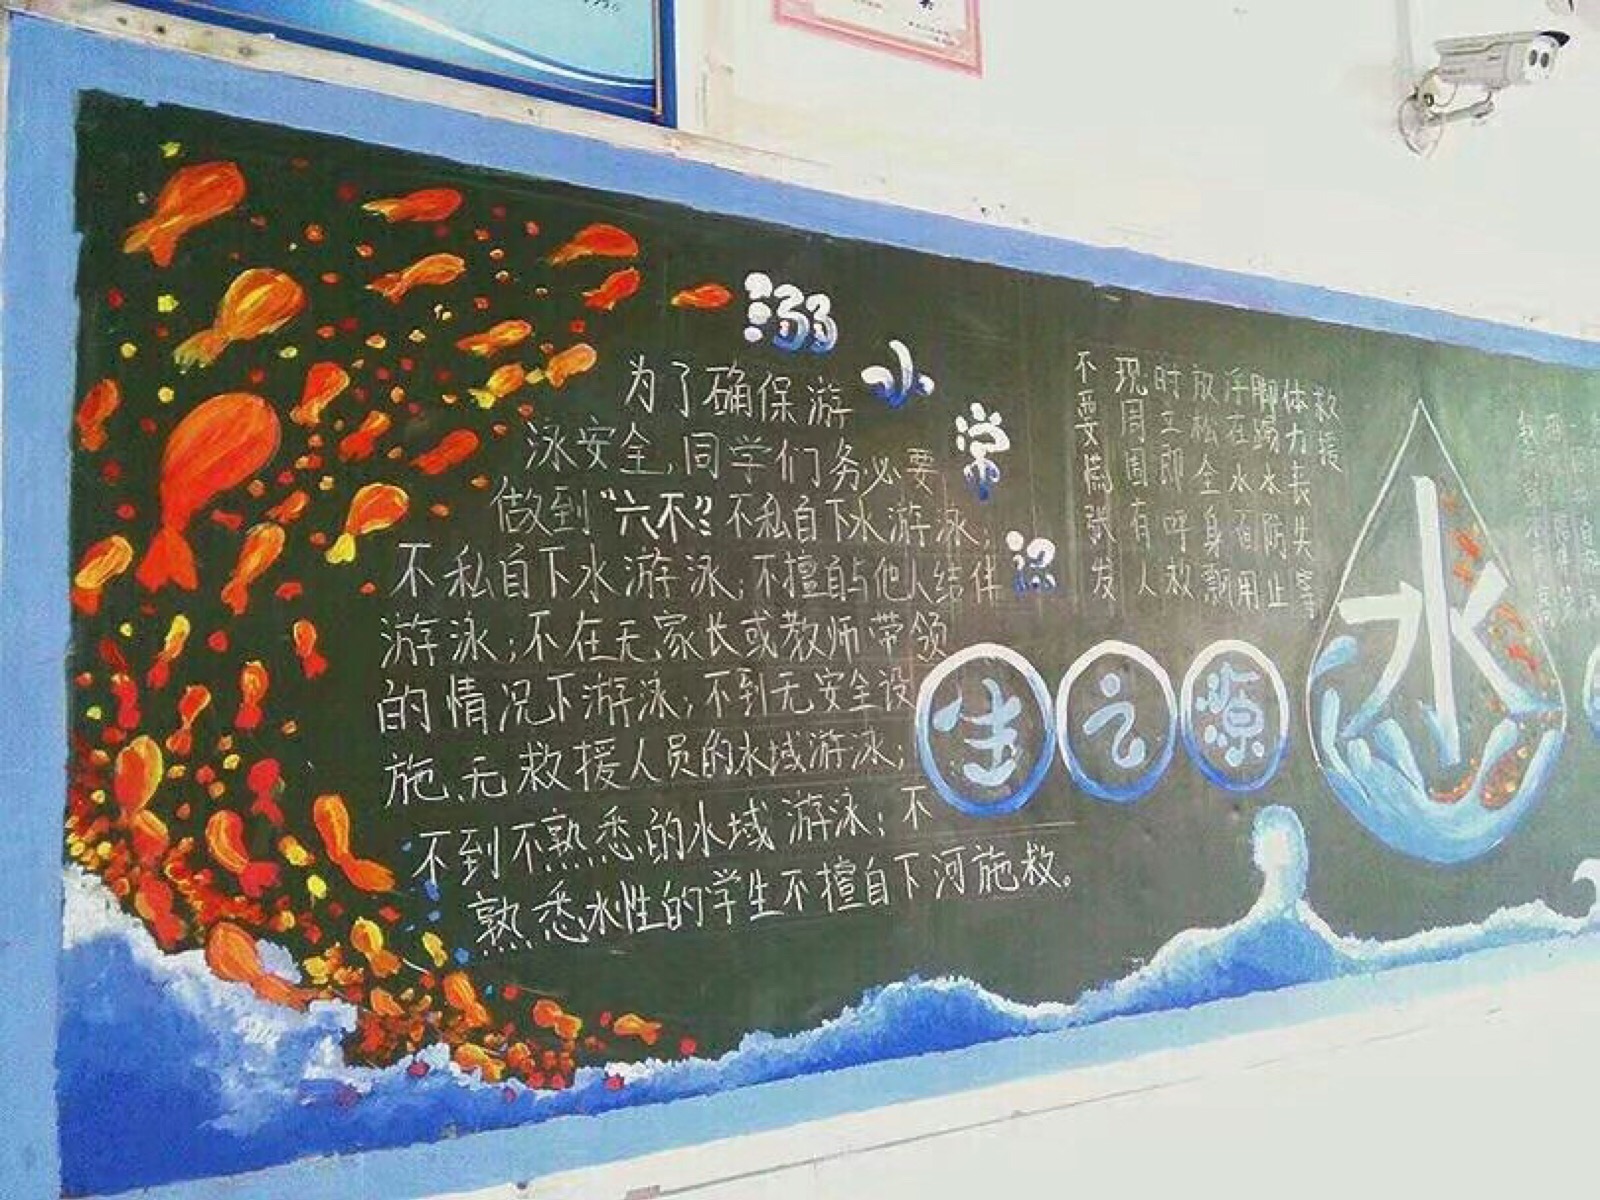 溺水常识
为了确保游
泳安全,同学们务必要
做到“六不”:不私自下水游泳;
不私自下水游泳;不擅自与他人结伴
游泳;不在无家长或教师带领
的情况下游泳;不到无安全设
施、无救援人员的水域游泳;
不到不熟悉的水域游泳;不
熟悉水性的学生不擅自下河施救。
不要慌张发
现周围有人
时立即呼救
放松全身飘
浮在水面用
脚踢水防止
体力丧失等
救援
生之源
水